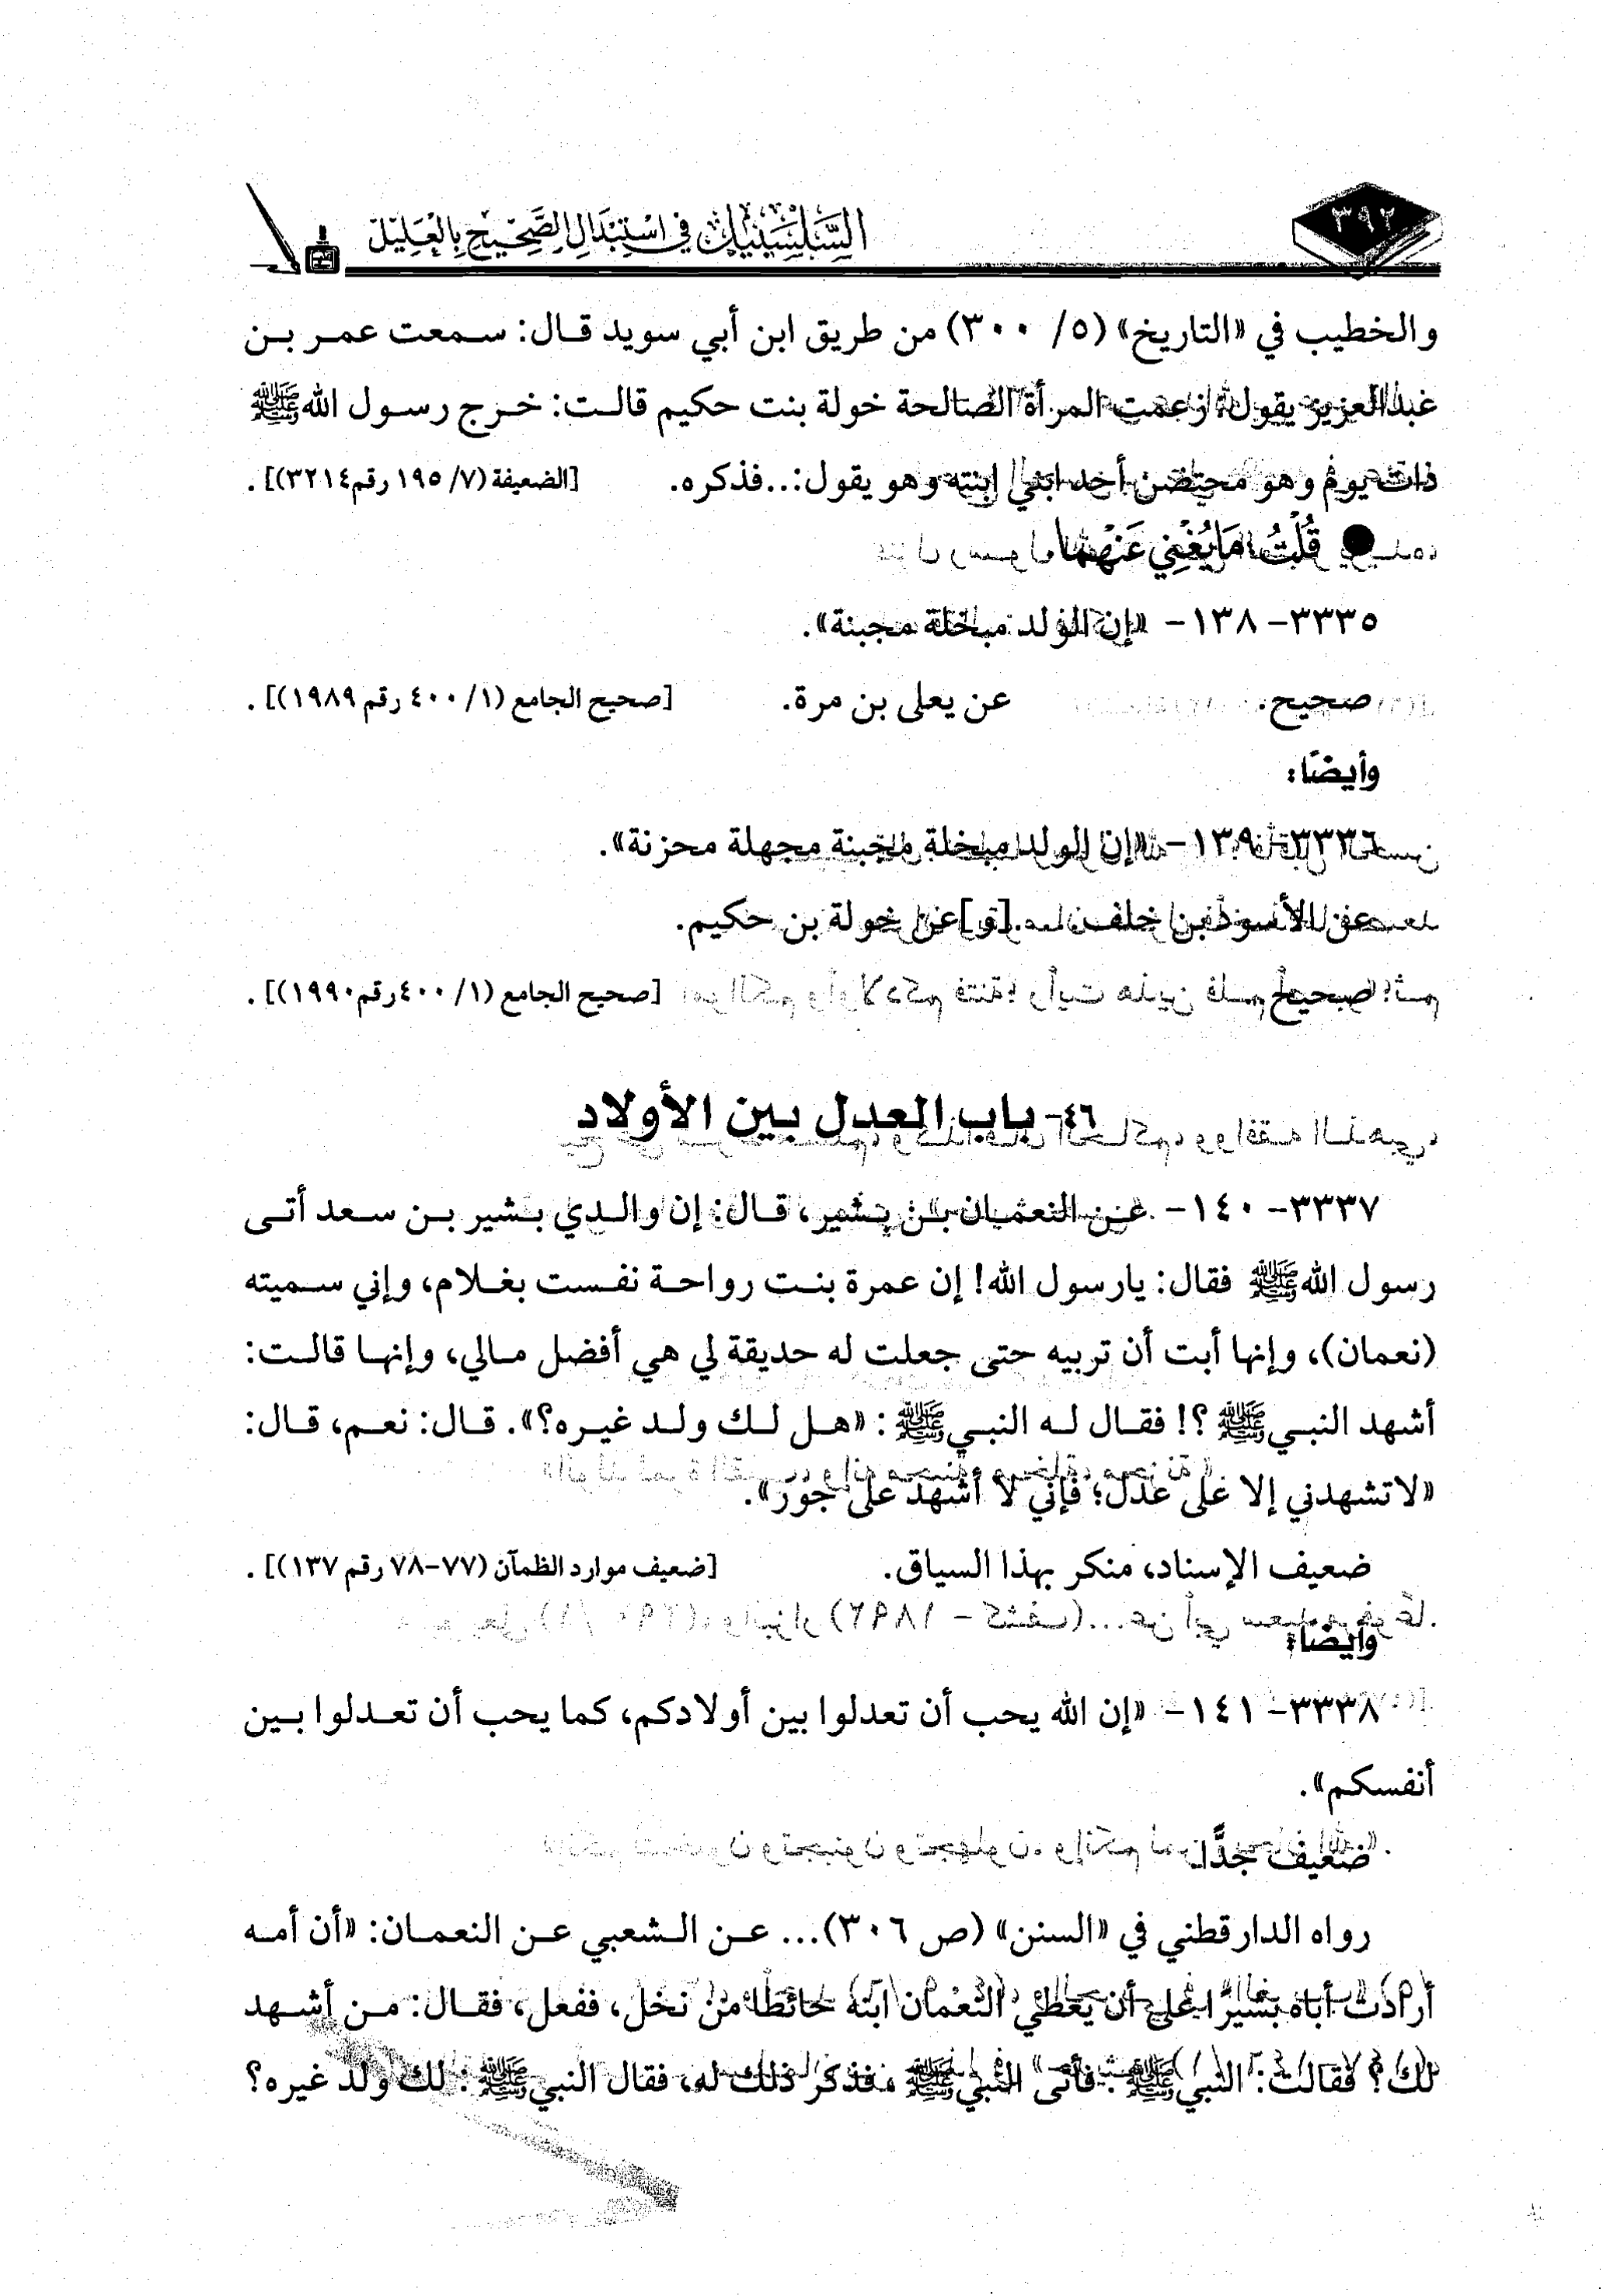 ٣٩٢
السلسبيل في استبدال الصحيح بالعليل
والخطيب في «التاريخ» (٥/ ٣٠٠) من طريق ابن أبي سويد قال: سمعت عمر بن
عبدالعزيز يقول: زعمت المرأة الصالحة خولة بنت حكيم قالت: خرج رسول الله ﷺ
ذات يوم وهو محتضن أحد ابني ابنته وهو يقول:...فذكره. [الضعيفة (٧/ ١٩٥ رقم ٣٢١٤)].
● قُلْتُ: مَا يُغْنِي عَنْهُمَا.
٣٣٣٥- ١٣٨- «إن الولد مبخلة مجبنة».
صحيح. عن يعلى بن مرة. [صحيح الجامع (١/ ٤٠٠ رقم ١٩٨٩)].
وأيضًا:
٣٣٣٦- ١٣٩- «إن الولد مبخلة مجبنة مجهلة محزنة».
عن الأسود بن خلف. [و] عن خولة بن حكيم.
صحيح. [صحيح الجامع (١/ ٤٠٠ رقم ١٩٩٠)].
٤٦- باب العدل بين الأولاد
٣٣٣٧- ١٤٠- عن النعمان بن بشير، قال: إن والدي بشير بن سعد أتى
رسول الله ﷺ فقال: يارسول الله! إن عمرة بنت رواحة نفست بغلام، وإني سميته
(نعمان)، وإنها أبت أن تربيه حتى جعلت له حديقة لي هي أفضل مالي، وإنها قالت:
أشهد النبي ﷺ ؟! فقال له النبي ﷺ : «هل لك ولد غيره؟». قال: نعم، قال:
«لا تشهدني إلا على عدل؛ فإني لا أشهد على جور».
ضعيف الإسناد، منكر بهذا السياق. [ضعيف موارد الظمآن (٧٧-٧٨ رقم ١٣٧)].
وأيضًا:
٣٣٣٨- ١٤١- «إن الله يحب أن تعدلوا بين أولادكم، كما يحب أن تعدلوا بين
أنفسكم».
ضعيف جدًّا.
رواه الدارقطني في «السنن» (ص ٣٠٦)... عن الشعبي عن النعمان: «أن أمه
أرادت أباه بشيرًا على أن يعطي النعمان ابنه حائطًا من نخل، ففعل، فقال: من أشهد
لك؟ فقالت: النبي ﷺ . فأتى النبي ﷺ ، فذكر ذلك له، فقال النبي ﷺ : لك ولد غيره؟